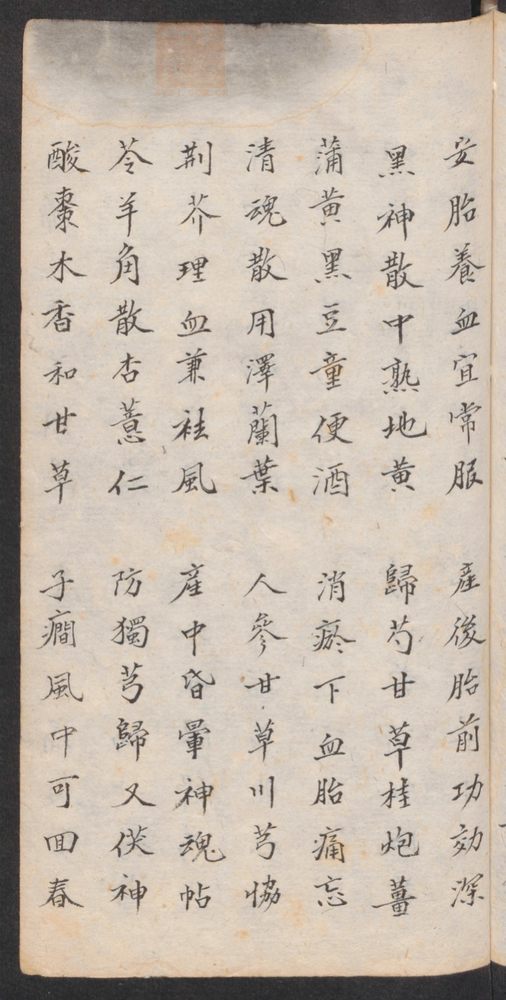 安胎養血宜常服　產後胎前功効深
黑神散中熟地黃　歸芍甘草桂炮薑
蒲黃黑豆童便酒　消瘀下血胎痛忘
清魂散用澤蘭葉　人參甘草川芎恊
荆芥理血兼袪風　產中昏暈神魂帖
苓羊角散杏薏仁　防獨芎歸又茯神
酸棗木香和甘草　子癇風中可回春